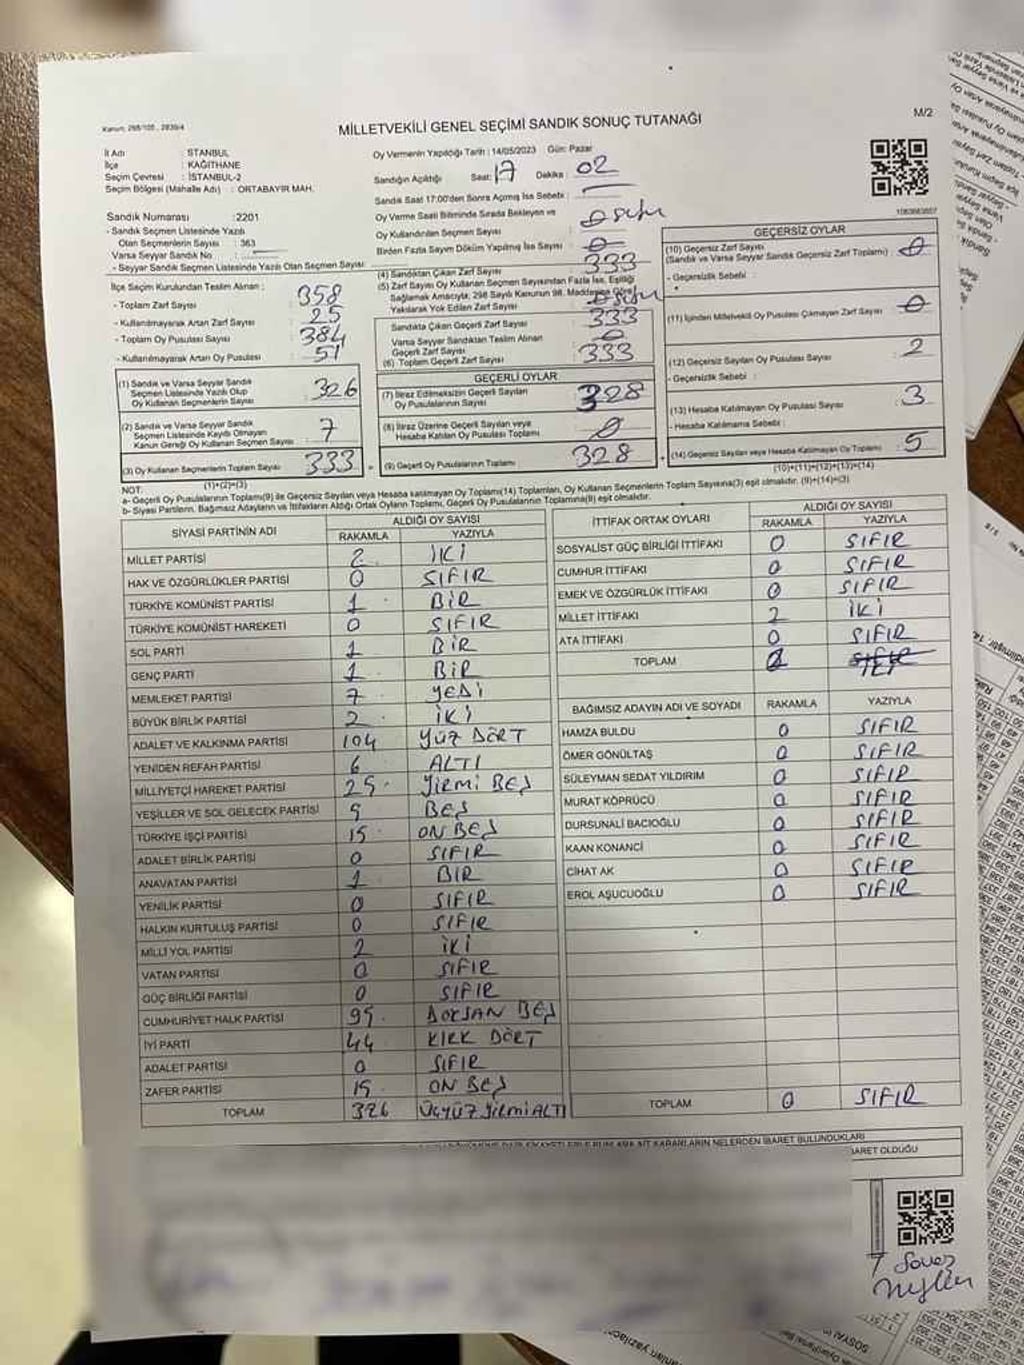 Kanun: 298/105 , 2839/4
MİLLETVEKİLİ GENEL SEÇİMİ SANDIK SONUÇ TUTANAĞI
M/2
İl Adı : İSTANBUL
İlçe : KAĞITHANE
Seçim Çevresi : İSTANBUL-2
Seçim Bölgesi (Mahalle Adı) : ORTABAYIR MAH.
Sandık Numarası :2201
- Sandık Seçmen Listesinde Yazılı
Olan Seçmenlerin Sayısı : 363
Varsa Seyyar Sandık No :
- Seyyar Sandık Seçmen Listesinde Yazılı Olan Seçmen Sayısı:
İlçe Seçim Kurulundan Teslim Alınan :
- Toplam Zarf Sayısı : 358
- Kullanılmayarak Artan Zarf Sayısı : 25
- Toplam Oy Pusulası Sayısı : 384
- Kullanılmayarak Artan Oy Pusulası : 51
(1) Sandık ve Varsa Seyyar Sandık
Seçmen Listesinde Yazılı Olup
Oy Kullanan Seçmenlerin Sayısı : 326
(2) Sandık ve Varsa Seyyar Sandık
Seçmen Listesinde Kayıtlı Olmayan
Kanun Gereği Oy Kullanan Seçmen Sayısı : 7
(3) Oy Kullanan Seçmenlerin Toplam Sayısı : 333
(1)+(2)=(3)
Oy Vermenin Yapıldığı Tarih : 14/05/2023 Gün: Pazar
Sandığın Açıldığı Saat: 17 Dakika : 02
Sandık Saat 17:00'den Sonra Açılmış İse Sebebi :
Oy Verme Saati Bitiminde Sırada Bekleyen ve
Oy Kullandırılan Seçmen Sayısı : 0 sıfır
Birden Fazla Sayım Döküm Yapılmış İse Sayısı : 0
(4) Sandıktan Çıkan Zarf Sayısı : 333
(5) Zarf Sayısı Oy Kullanan Seçmen Sayısından Fazla İse, Eşitliği
Sağlamak Amacıyla, 298 Sayılı Kanunun 98. Maddesine Göre
Yakılarak Yok Edilen Zarf Sayısı : 0 sıfır
Sandıkta Çıkan Geçerli Zarf Sayısı : 333
Varsa Seyyar Sandıktan Teslim Alınan
Geçerli Zarf Sayısı : 0
(6) Toplam Geçerli Zarf Sayısı : 333
GEÇERLİ OYLAR
(7) İtiraz Edilmeksizin Geçerli Sayılan
Oy Pusulalarının Sayısı : 328
(8) İtiraz Üzerine Geçerli Sayılan veya
Hesaba Katılan Oy Pusulası Toplamı : 0
(9) Geçerli Oy Pusulalarının Toplamı : 328
GEÇERSİZ OYLAR
(10) Geçersiz Zarf Sayısı
(Sandık ve Varsa Seyyar Sandık Geçersiz Zarf Toplamı) : 0
- Geçersizlik Sebebi :
(11) İçinden Milletvekili Oy Pusulası Çıkmayan Zarf Sayısı : 0
(12) Geçersiz Sayılan Oy Pusulası Sayısı : 2
- Geçersizlik Sebebi :
(13) Hesaba Katılmayan Oy Pusulası Sayısı : 3
- Hesaba Katılmama Sebebi :
(14) Geçersiz Sayılan veya Hesaba Katılmayan Oy Toplamı : 5
(10)+(11)+(12)+(13)=(14)
NOT:
a- Geçerli Oy Pusulalarının Toplamı(9) ile Geçersiz Sayılan veya Hesaba katılmayan Oy Toplamı(14) Toplamları, Oy Kullanan Seçmenlerin Toplam Sayısına(3) eşit olmalıdır. (9)+(14)=(3)
b- Siyasi Partilerin, Bağımsız Adayların ve İttifakların Aldığı Ortak Oyların Toplamı, Geçerli Oy Pusulalarının Toplamına(9) eşit olmalıdır.
SİYASİ PARTİNİN ADI ALDIĞI OY SAYISI
RAKAMLA YAZIYLA
MİLLET PARTİSİ 2 İKİ
HAK VE ÖZGÜRLÜKLER PARTİSİ 0 SIFIR
TÜRKİYE KOMÜNİST PARTİSİ 1 BİR
TÜRKİYE KOMÜNİST HAREKETİ 0 SIFIR
SOL PARTİ 1 BİR
GENÇ PARTİ 1 BİR
MEMLEKET PARTİSİ 7 YEDİ
BÜYÜK BİRLİK PARTİSİ 2 İKİ
ADALET VE KALKINMA PARTİSİ 104 YÜZ DÖRT
YENİDEN REFAH PARTİSİ 6 ALTI
MİLLİYETÇİ HAREKET PARTİSİ 25 YİRMİ BEŞ
YEŞİLLER VE SOL GELECEK PARTİSİ 5 BEŞ
TÜRKİYE İŞÇİ PARTİSİ 15 ON BEŞ
ADALET BİRLİK PARTİSİ 0 SIFIR
ANAVATAN PARTİSİ 1 BİR
YENİLİK PARTİSİ 0 SIFIR
HALKIN KURTULUŞ PARTİSİ 0 SIFIR
MİLLİ YOL PARTİSİ 2 İKİ
VATAN PARTİSİ 0 SIFIR
GÜÇ BİRLİĞİ PARTİSİ 0 SIFIR
CUMHURİYET HALK PARTİSİ 95 DOKSAN BEŞ
İYİ PARTİ 44 KIRK DÖRT
ADALET PARTİSİ 0 SIFIR
ZAFER PARTİSİ 15 ON BEŞ
TOPLAM 326 ÜÇYÜZ YİRMİ ALTI
İTTİFAK ORTAK OYLARI ALDIĞI OY SAYISI
RAKAMLA YAZIYLA
SOSYALİST GÜÇ BİRLİĞİ İTTİFAKI 0 SIFIR
CUMHUR İTTİFAKI 0 SIFIR
EMEK VE ÖZGÜRLÜK İTTİFAKI 0 SIFIR
MİLLET İTTİFAKI 2 İKİ
ATA İTTİFAKI 0 SIFIR
TOPLAM 2
BAĞIMSIZ ADAYIN ADI VE SOYADI RAKAMLA YAZIYLA
HAMZA BULDU 0 SIFIR
ÖMER GÖNÜLTAŞ 0 SIFIR
SÜLEYMAN SEDAT YILDIRIM 0 SIFIR
MURAT KÖPRÜCÜ 0 SIFIR
DURSUNALİ BACIOĞLU 0 SIFIR
KAAN KONANCİ 0 SIFIR
CİHAT AK 0 SIFIR
EROL AŞUCUOĞLU 0 SIFIR
TOPLAM 0 SIFIR
KARARLARIN NELERDEN İBARET BULUNDUKLARI
BARET OLDUĞU